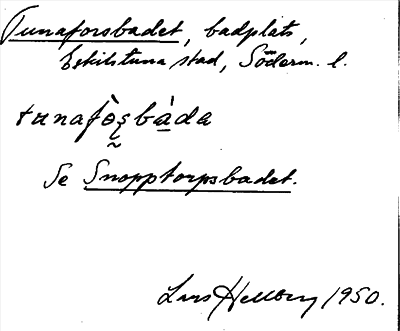 Tunaforsbadet, badplats,
Eskilstuna stad, Söderm. l.
tunafò̱ʂbà̱da
Se Snopptorpsbadet.
Lars Hellberg 1950.